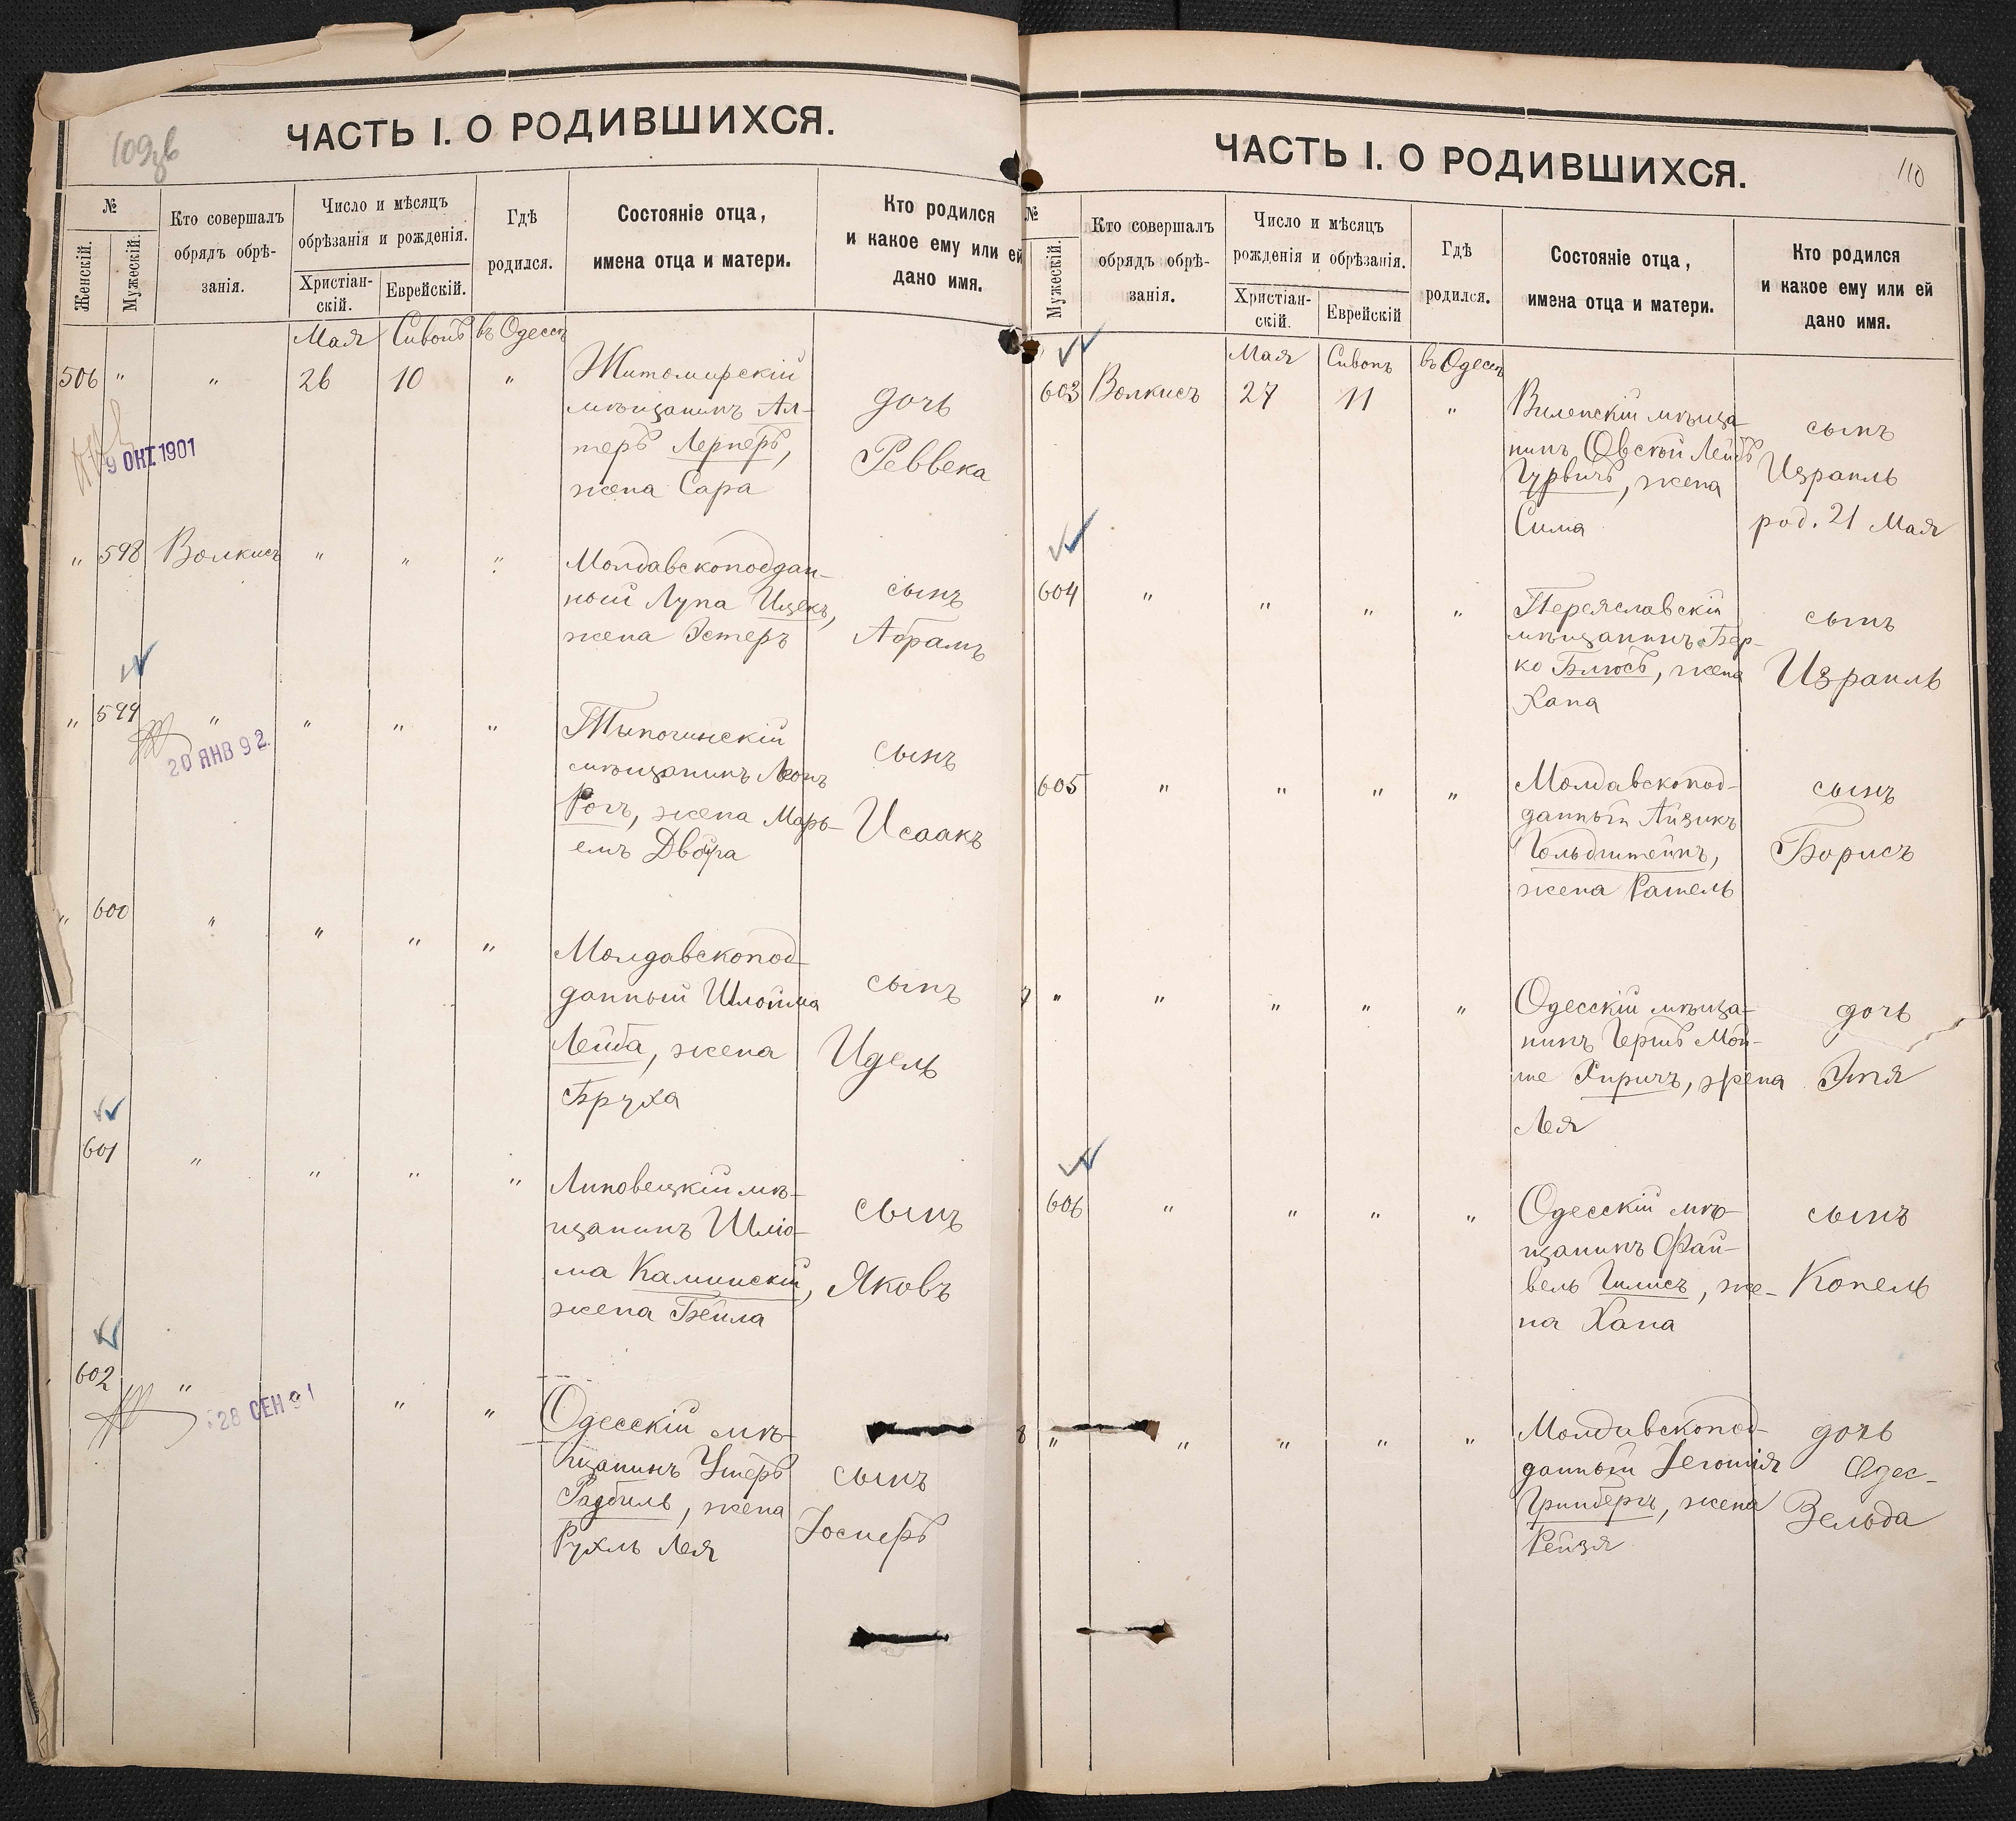 109зв
ЧАСТЬ I. О РОДИВШИХСЯ.
№
Женскій.
Мужескій.
Кто совершалъ
обрядъ обрѣ-
занія.
Число и мѣсяцъ
обрѣзанія и рожденія.
Христіан-
скій.
Еврейскій.
Гдѣ
родился.
Состояніе отца,
имена отца и матери.
Кто родился
и какое ему или ей
дано имя.
Мая Сивонъ въ Одессѣ
506 " " 26 10 "
Житомирскій
мѣщанинъ Ал-
теръ Лернеръ,
жена Сара
дочь
Реввека
9 ОКТ 1901
" 598 Волкисъ " " "
Молдавскоподдан-
ный Лупа Ицекъ,
жена Эстеръ
сынъ
Абрамъ
" 599 " " " "
20 ЯНВ 92
мѣщанинъ Леонъ
Рогъ, жена Марь-
емъ Двойра
сынъ
Исаакъ
" 600 " " " "
Молдавскопод-
данный Шлойма
Лейба, жена
Бруха
сынъ
Идель
601 " " " "
Липовецкій мѣ-
щанинъ Шліо-
ма Каминскій,
жена Бейла
сынъ
Яковъ
602 " " "
28 СЕН 91
Одесскій мѣ-
щанинъ Ушеръ
Радбиль, жена
Рухль Лея
сынъ
Іосифъ
110
ЧАСТЬ I. О РОДИВШИХСЯ.
№
Мужескій.
Кто совершалъ
обрядъ обрѣ-
занія.
Число и мѣсяцъ
рожденія и обрѣзанія.
Христіан-
скій.
Еврейскій
Гдѣ
родился.
Состояніе отца,
имена отца и матери.
Кто родился
и какое ему или ей
дано имя.
Мая Сивонъ въ Одессѣ
603 Волкисъ 27 11 "
Виленскій мѣща-
нинъ Овсей Лейбъ
Гурвичъ, жена
Сима
сынъ
Израиль
род. 21 Мая
604 " " " "
Переяславскій
мѣщанинъ Бер-
ко Блюсъ, жена
Хана
сынъ
Израиль
605 " " " "
Молдавскопод-
данный Айзикъ
Гольдштейнъ,
жена Рашель
сынъ
Борисъ
7 " " " " "
Одесскій мѣща-
нинъ Гершъ Мой-
ше жена
Лея
дочь
606 " " " "
Одесскій мѣ-
щанинъ Фай-
вель Гилисъ, же-
на Хана
сынъ
Копель
8 " " " " "
Молдавскопод-
данный
Гринбергъ, жена
Рейзя
дочь
Одес-
Зельда